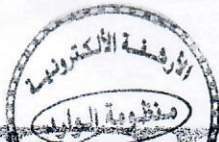 الأرشفة الألكترونية
منظومة الوارد